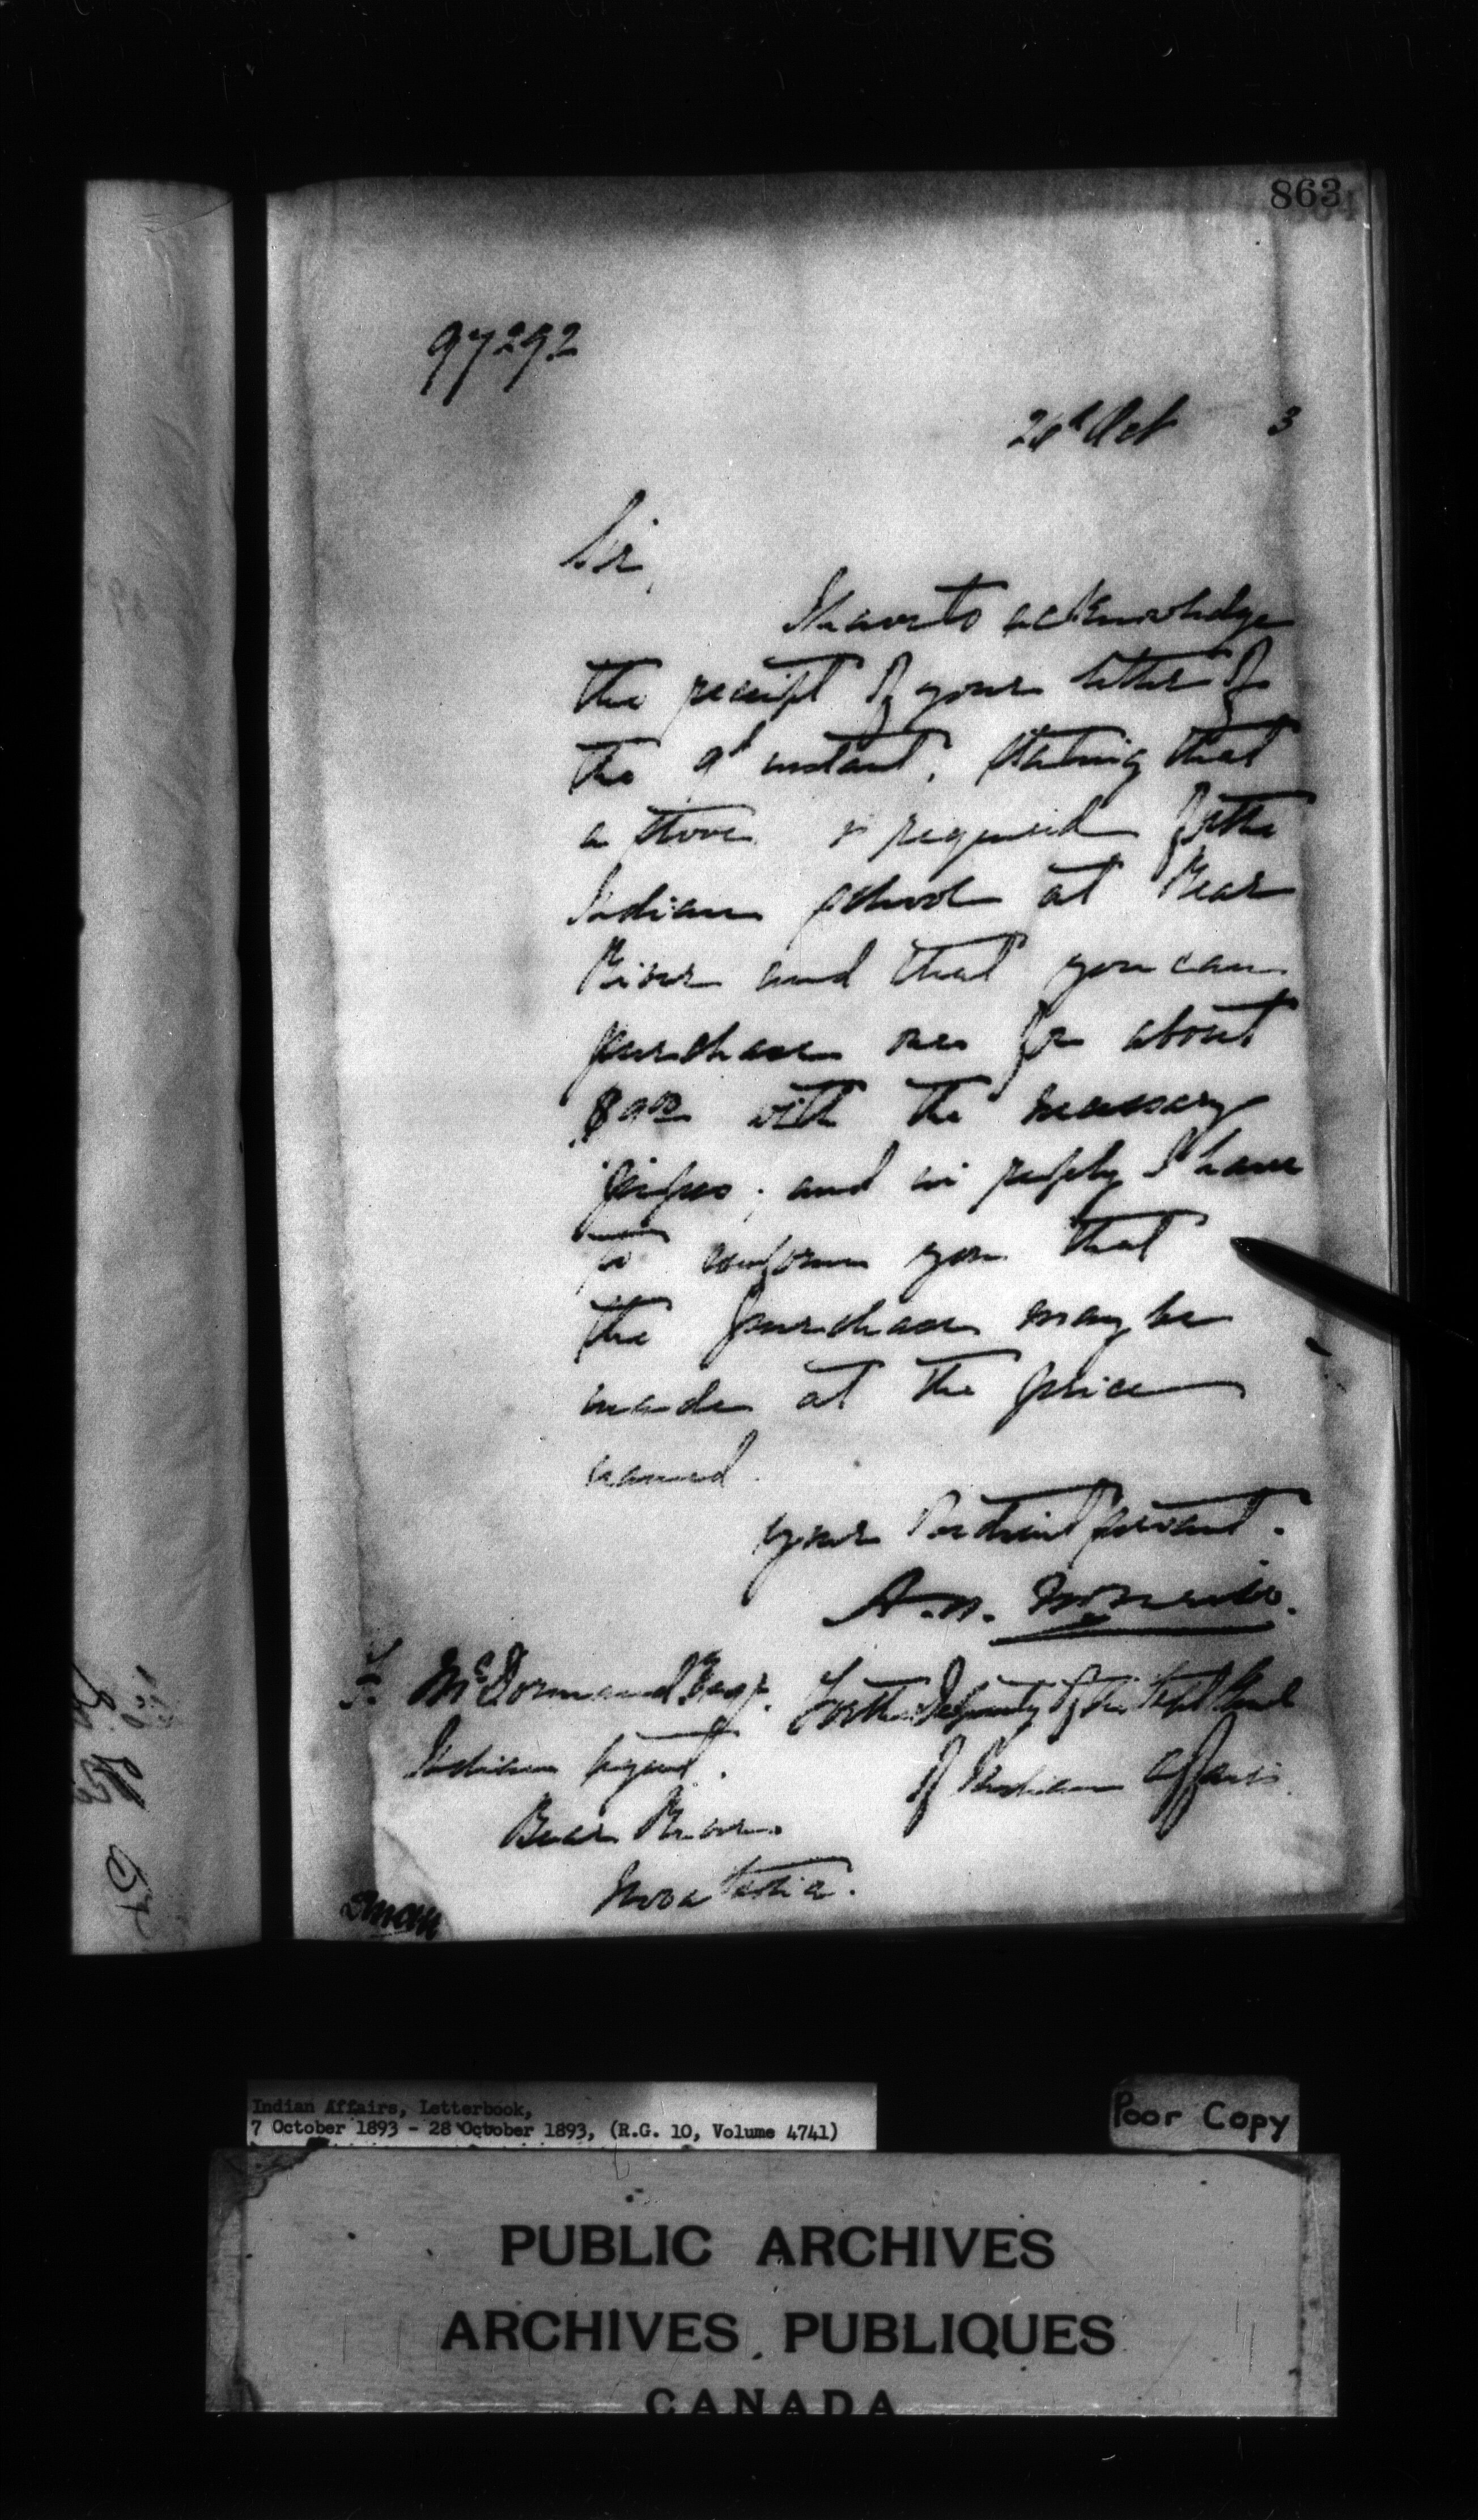 863
97292
Oct 3
Sir,
I have to acknowledge
the receipt of your letter of
the 9th instant, stating that
a stove is required for the
Indian school at Bear
River and that you can
purchase one for about
$9.00 with the necessary
pipes, and in reply I have
to inform you that
the purchase may be
made at the price
named.
Your obedient servant.
A. N. McNeill.
F. McDormand Esqr.
For the Deputy of the Supt Genl
Indian Agent.
of Indian Affairs.
Bear River.
Nova Scotia.
Indian Affairs, Letterbook,
7 October 1893 - 28 October 1893, (R.G. 10, Volume 4741)
Poor Copy
PUBLIC ARCHIVES
ARCHIVES PUBLIQUES
CANADA